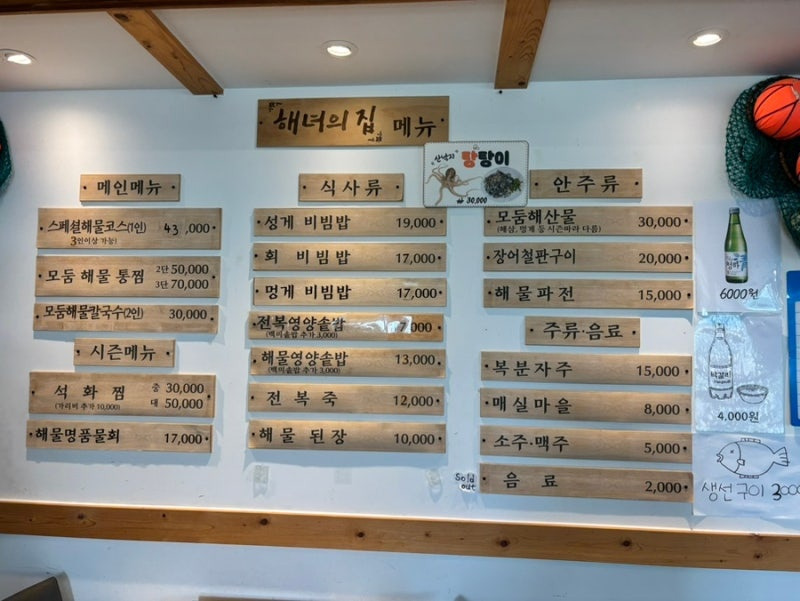 해녀의 집 메뉴
산낙지 탕탕이
30,000
메인메뉴
스페셜해물코스(1인) 43,000
3인이상 가능)
모둠 해물 통찜 2단 50,000
3단 70,000
모둠해물칼국수(2인) 30,000
시즌메뉴
석 화 찜 중 30,000
(가리비 추가 10,000) 대 50,000
해물명품물회 17,000
식 사 류
성게 비빔밥 19,000
회 비 빔 밥 17,000
멍게 비빔밥 17,000
전복영양솥밥 7,000
(백미솥밥 추가 3,000)
해물영양솥밥 13,000
(백미솥밥 추가 3,000)
전 복 죽 12,000
해 물 된 장 10,000
안 주 류
모둠해산물 30,000
(해삼, 멍게 등 시즌따라 다름)
장어철판구이 20,000
해 물 파 전 15,000
주류·음료
복 분 자 주 15,000
매 실 마 을 8,000
소주·맥주 5,000
Sold out
음 료 2,000
청하
6000원
막걸리
4,000원
생선구이 3000